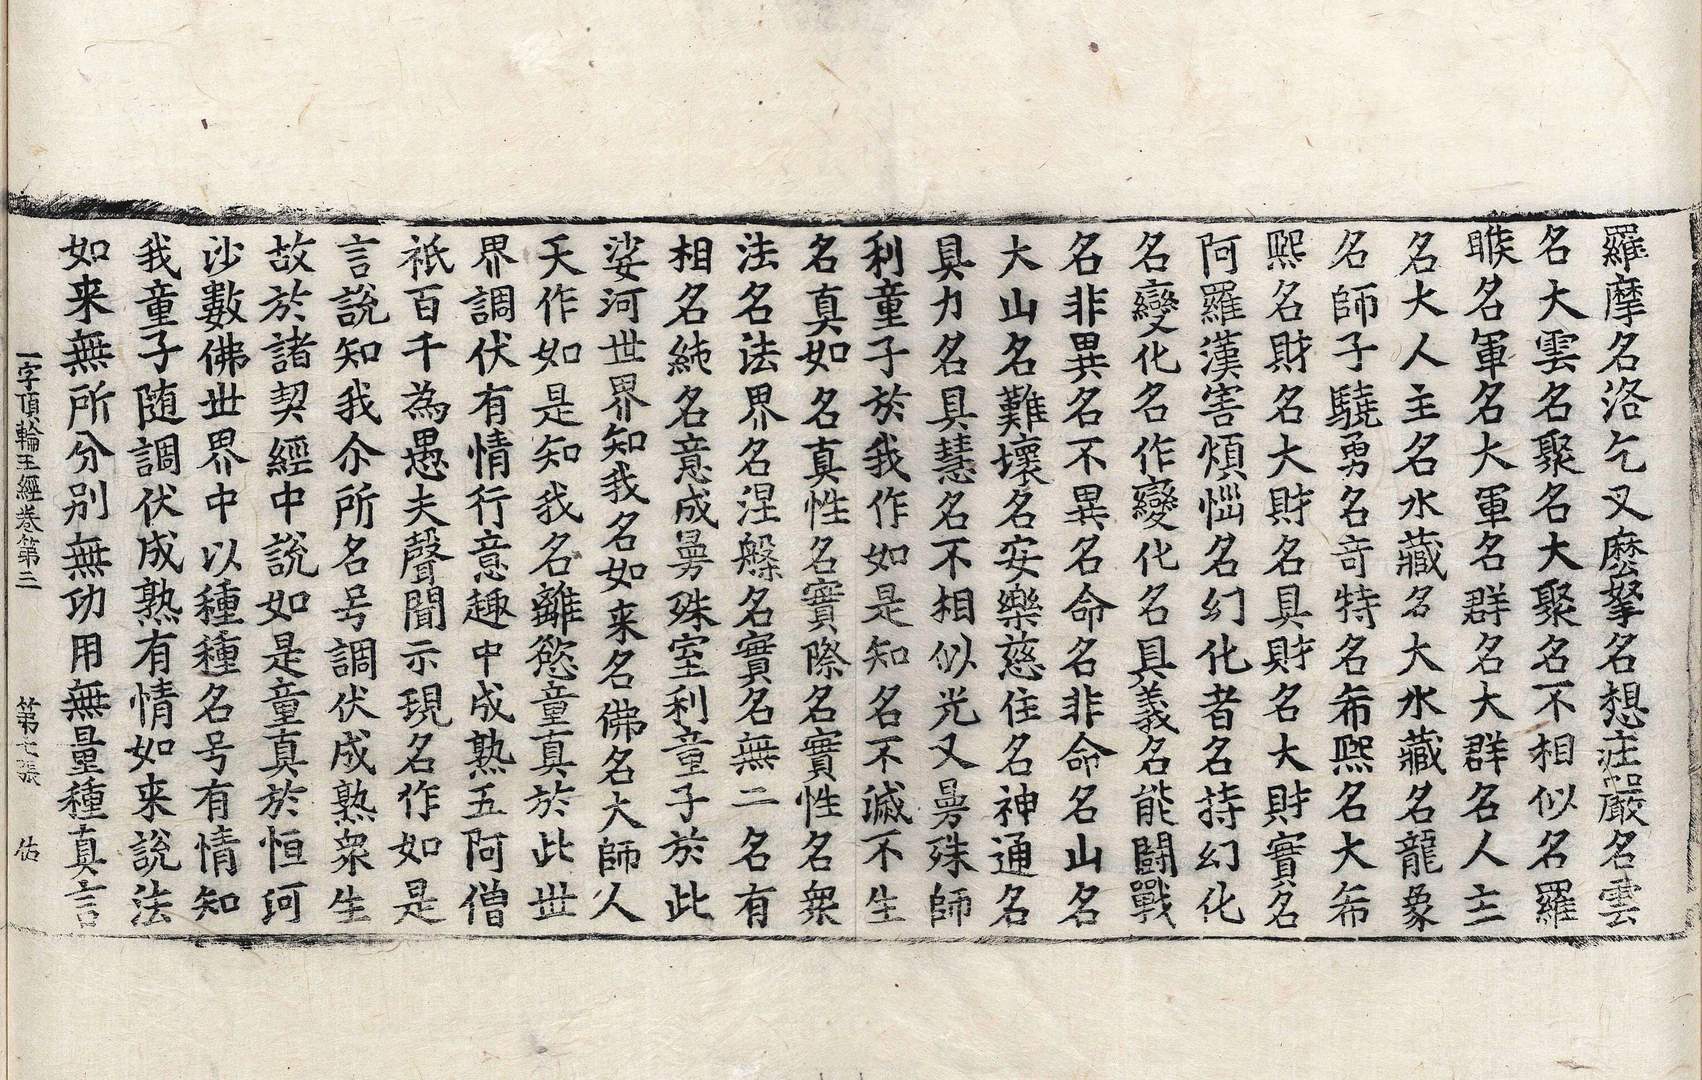 羅摩名洛乞叉麽拏名想荘嚴名雲
名大雲名聚名大聚名不相似名羅
睺名軍名大軍名群名大群名人主
名大人主名水藏名大水藏名龍象
名師子驍勇名奇特名希熈名大希
熈名財名大財名具財名大財實名
阿羅漢害煩惱名幻化者名持幻化
名變化名作變化名具義名能鬪戰
名非異名不異名命名非命名山名
大山名難壞名安樂慈住名神通名
具力名具慧名不相似光又曼殊師
利童子於我作如是知名不滅不生
名真如名真性名實際名實性名衆
法名法界名涅槃名實名無二名有
相名純名意成曼殊室利童子於此
娑河世界知我名如来名佛名大師人
天作如是知我名離慾童真於此世
界調伏有情行意趣中成熟五阿僧
祇百千為愚夫聲聞示現名作如是
言說知我尒所名号調伏成熟衆生
故於諸契經中說如是童真於恒河
沙數佛世界中以種種名号有情知
我童子随調伏成熟有情如来說法
如来無所分别無功用無量種真言
一字頂輪王經卷第三 第七張 佑